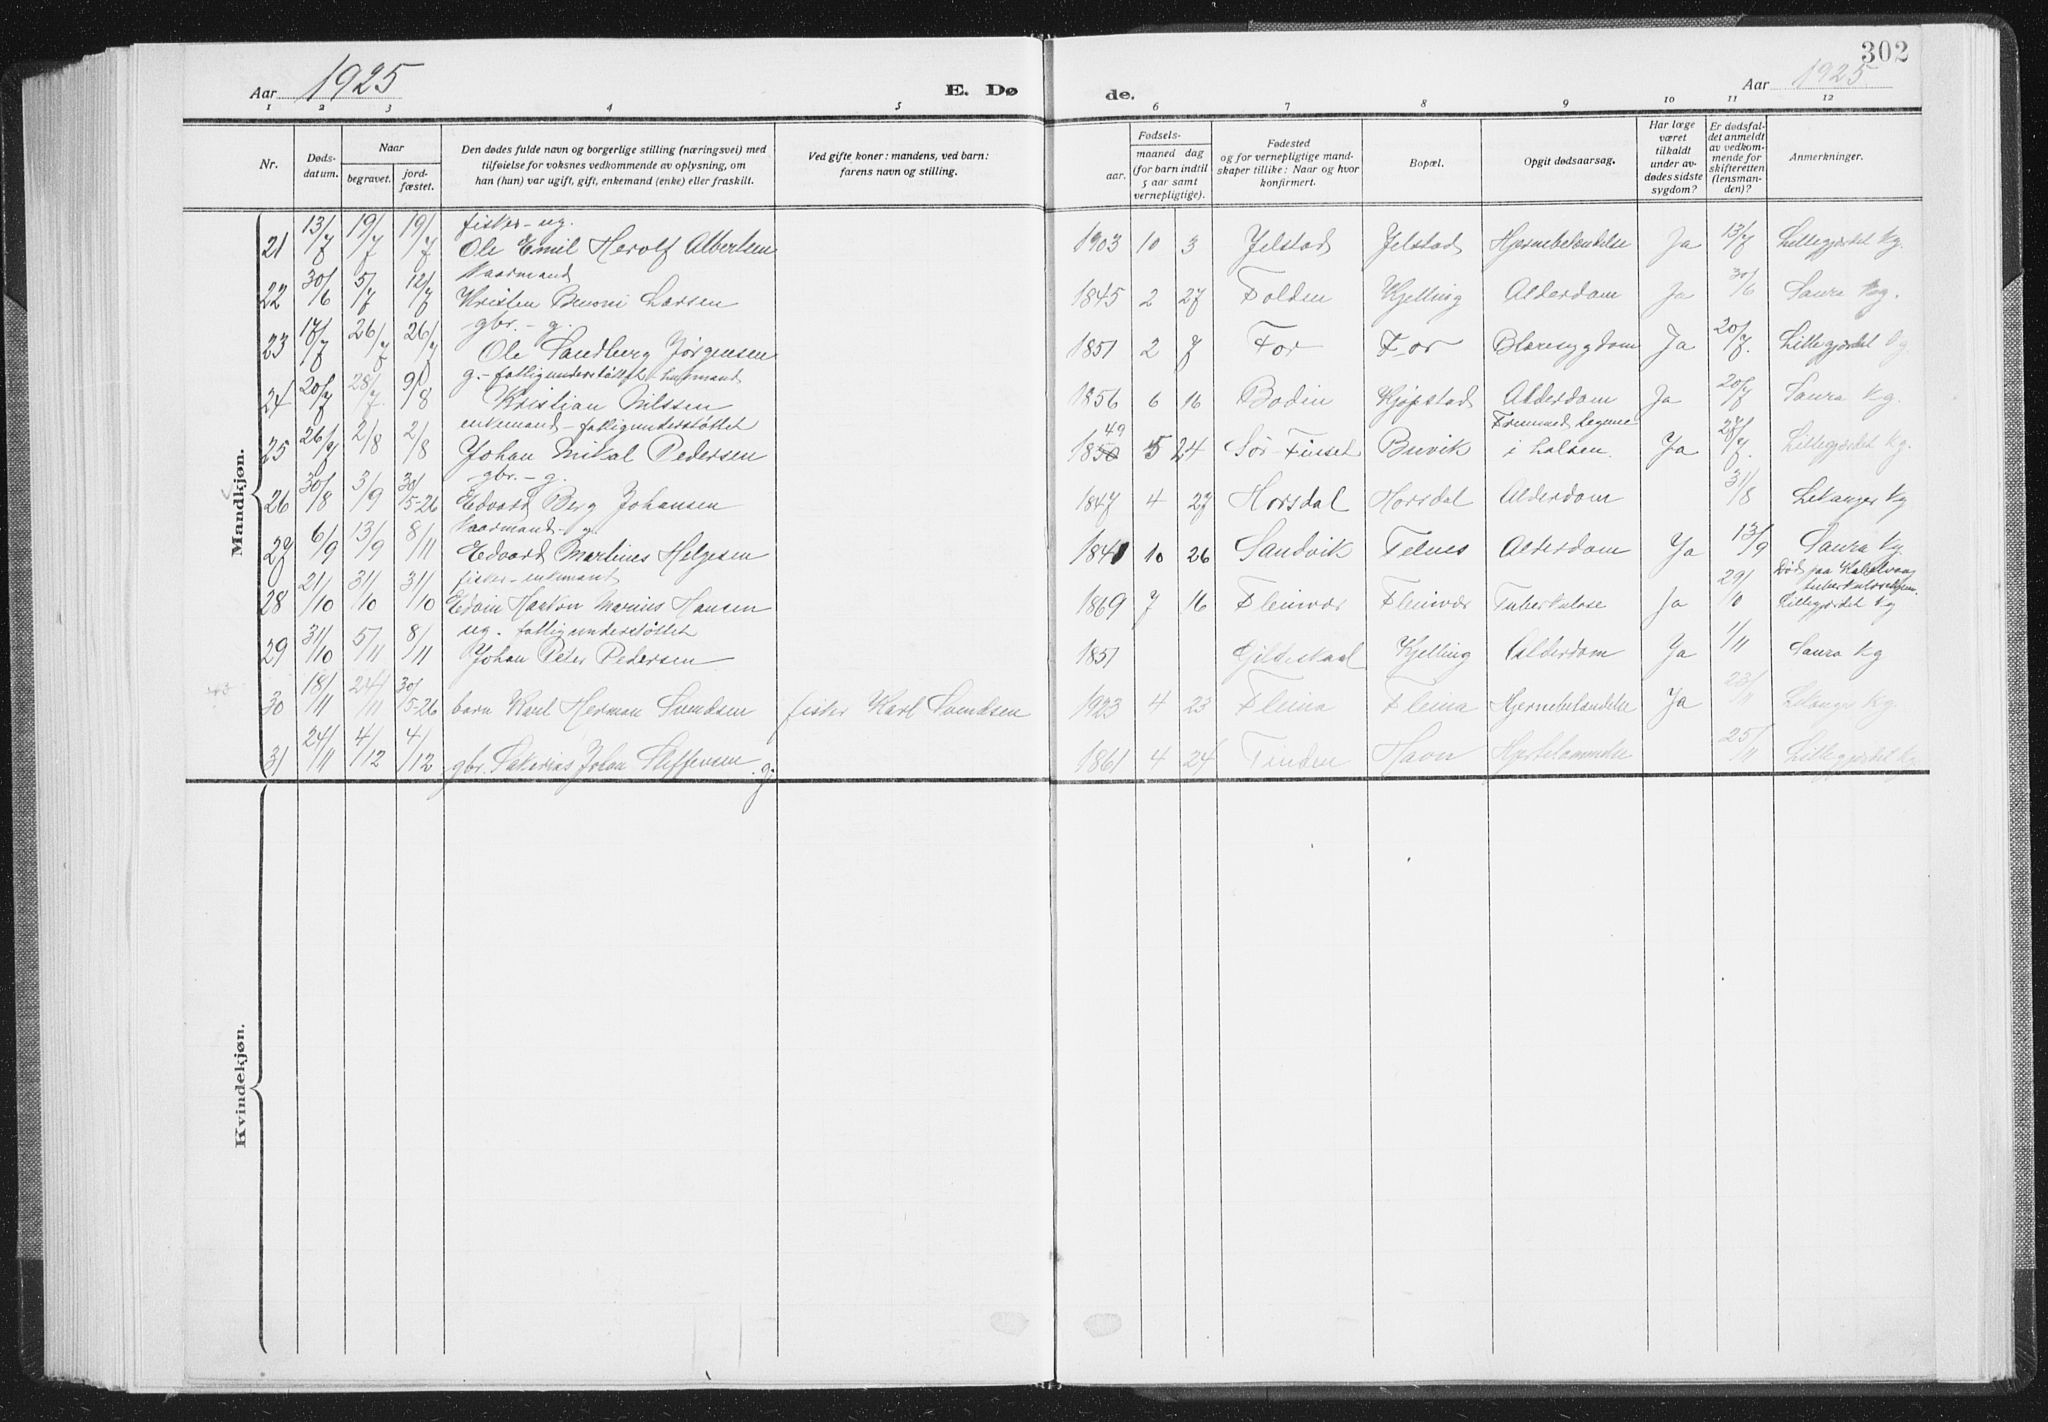 302
Aar 1925
E. Dø
de.
Aar 1925
1 2 3 4 5 6 7 8 9 10 11 12
Nr.
Døds-
datum.
Naar
begravet.
jord-
fæstet.
Den dødes fulde navn og borgerlige stilling (næringsvei) med
tilføielse for voksnes vedkommende av oplysning, om
han (hun) var ugift, gift, enkemand (enke) eller fraskilt.
Ved gifte koner: mandens, ved barn:
farens navn og stilling.
Fødsels-
aar.
maaned dag
(for barn indtil
5 aar samt
vernepligtige).
Fødested
og for vernepligtige mand-
skaper tillike: Naar og hvor
konfirmert.
Bopæl.
Opgit dødsaarsag.
Har læge
været
tilkaldt
under av-
dødes sidste
sygdom?
Er dødsfal-
det anmeldt
av vedkom-
mende for
skifteretten
(lensman-
den)?
Anmerkninger.
Mandkjøn.
fisker - ug.
21 13/7 19/7 19/7 Ole Emil Herolf Albertsen 1903 10 3 Jelstad Jelstad Hjernebetændelse Ja 13/7 Lillegjærdet kg.
kaarmand
22 30/6 5/7 12/7 Kristen Benoni Larsen 1845 2 27 Folden Kjelling Alderdom Ja 30/6 Saura kg.
gbr. - g.
23 17/7 26/7 26/7 Ole Sandberg Jørgensen 1851 2 7 For For Blæresygdom Ja 20/7. Lillegjærdet kg.
g. - fattigunderstøttet - husmand
24 20/7 28/7. 9/8 Kristian Nilssen 1856 6 16 Bodin Kjøpstad Alderdom Ja 20/7 Saura kg.
enkemand - fattigunderstøttet
25 26/7 2/8 2/8 Johan Mikal Pedersen 1850 49 5 24 Sør-Finset Buvik Fremmed legeme i halsen. Ja 27/7. Lillegjærdet kg.
gbr. - g.
26 30/8 3/9 30/5-26 Edvard Berg Johansen 1847 4 27 Horsdal Horsdal Alderdom 31/8 Lekanger kg
kaarmand - g.
27 6/9 13/9 8/11 Edvard Martines Helgesen 1841 10 26 Sandvik Telnes Alderdom Ja 13/9 Saura kg.
fisker - enkemand
28 21/10 31/10 31/10 Edvin Haakon Marius Hansen 1869 7 16 Fleinvær Fleinvær Tuberkulose Ja 29/10 Død paa Kabelvaag tuberkulosehjem. Lillegjærdet kg
ug. fattigunderstøttet
29 31/10 5/11 8/11 Johan Peter Pedersen 1851 Gildeskaal Kjelling Alderdom Ja 1/11 Saura kg
30 18/11 24/11 30/5-26 barn Karl Herman Svendsen fisker Karl Svendsen 1923 4 23 Fleina Fleina Hjernebetændelse Ja 23/11 Lekanger kg.
31 24/11 4/12 4/12 gbr. Sakarias Johan Steffensen g. 1861 4 24 Finden Havn Hjertelammelse 25/11 Lillegjærdet kg
Kvindekjøn.